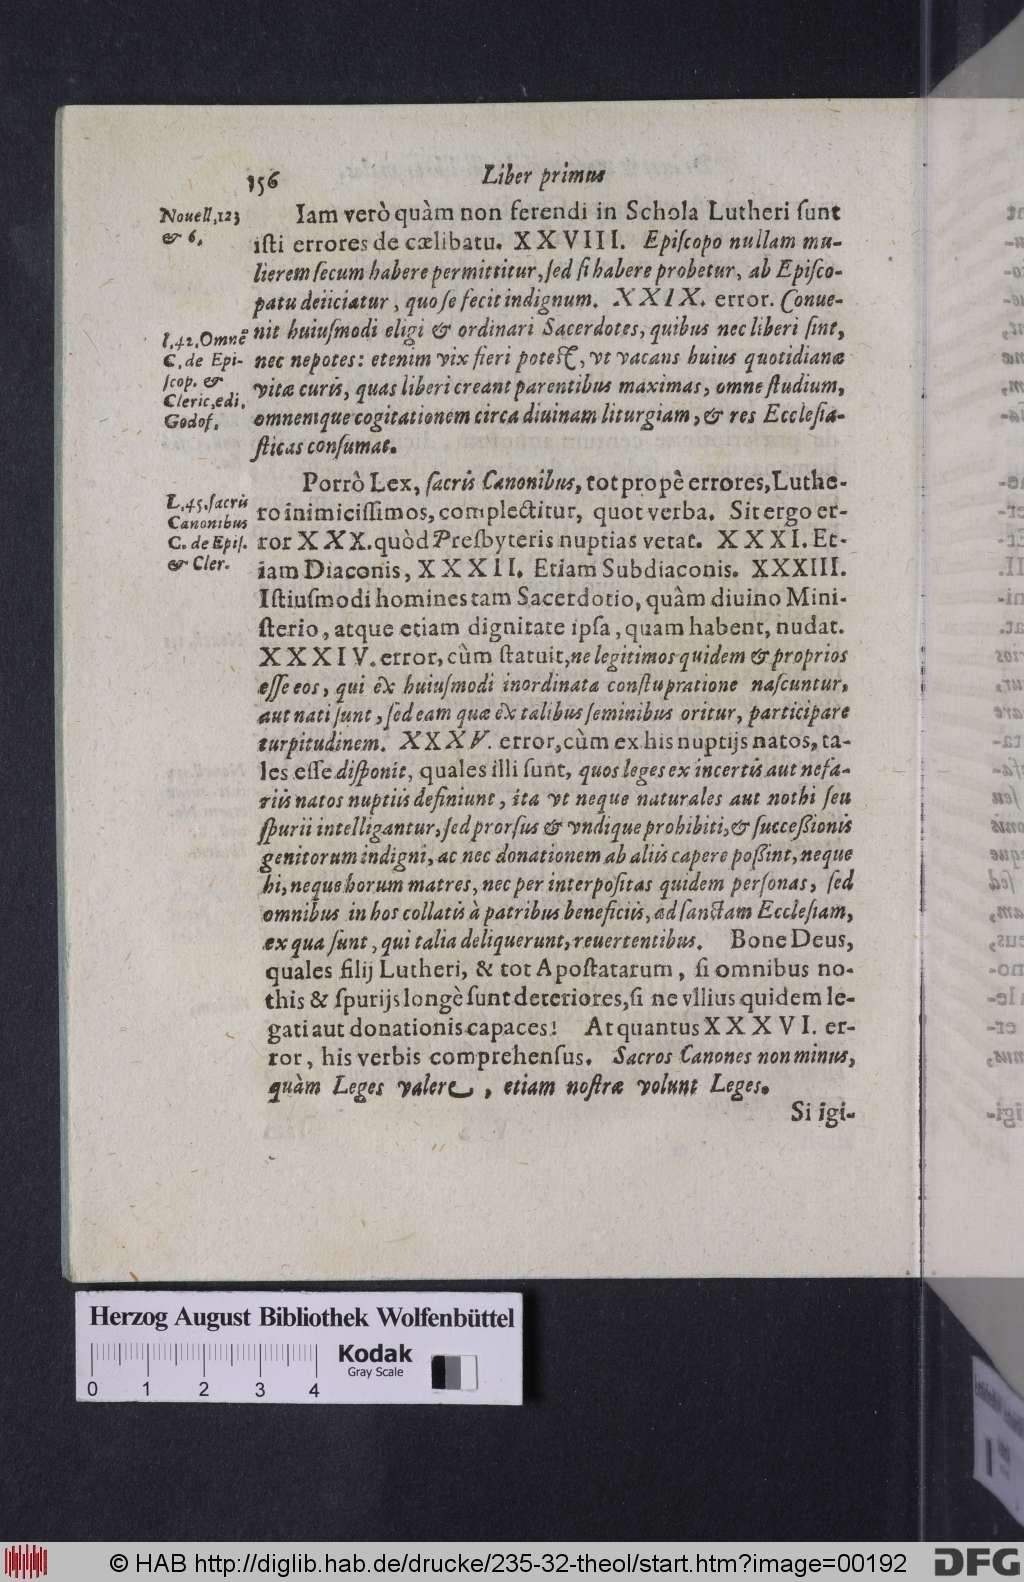 156 Liber primus
Nouell,123
& 6.
Iam verò quàm non ferendi in Schola Lutheri ſunt
iſti errores de cælibatu. XXVIII. Epiſcopo nullam mu-
lierem ſecum habere permittitur, ſed ſi habere probetur, ab Epiſco-
patu deiiciatur, quo ſe fecit indignum. XXIX. error. Conue-
nit huiuſmodi eligi & ordinari Sacerdotes, quibus nec liberi ſint,
nec nepotes: etenim vix fieri poteſt, vt vacans huius quotidianæ
vitæ curis, quas liberi creant parentibus maximas, omne ſtudium,
omnemque cogitationem circa diuinam liturgiam, & res Eccleſia-
ſticas conſumat.
l.42.Omnē
C. de Epi-
ſcop. &
Cleric.edi.
Godof.
Porrò Lex, ſacris Canonibus, tot propè errores, Luthe-
ro inimiciſſimos, complectitur, quot verba. Sit ergo er-
ror XXX. quòd Presbyteris nuptias vetat. XXXI. Et-
iam Diaconis, XXXII. Etiam Subdiaconis. XXXIII.
Iſtiuſmodi homines tam Sacerdotio, quàm diuino Mini-
ſterio, atque etiam dignitate ipſa, quam habent, nudat.
XXXIV. error, cùm ſtatuit, ne legitimos quidem & proprios
eſſe eos, qui ex huiuſmodi inordinata conſtupratione naſcuntur,
aut nati ſunt, ſed eam quæ ex talibus ſeminibus oritur, participare
turpitudinem. XXXV. error, cùm ex his nuptijs natos, ta-
les eſſe diſponit, quales illi ſunt, quos leges ex incertis aut nefa-
riis natos nuptiis definiunt, ita vt neque naturales aut nothi ſeu
ſpurii intelligantur, ſed prorſus & vndique prohibiti, & ſucceßionis
genitorum indigni, ac nec donationem ab aliis capere poßint, neque
hi, neque horum matres, nec per interpoſitas quidem perſonas, ſed
omnibus in hos collatis à patribus beneficiis, ad ſanctam Eccleſiam,
ex qua ſunt, qui talia deliquerunt, reuertentibus. Bone Deus,
quales filij Lutheri, & tot Apoſtatarum, ſi omnibus no-
this & ſpurijs longè ſunt deteriores, ſi ne vllius quidem le-
gati aut donationis capaces! At quantus XXXVI. er-
ror, his verbis comprehenſus. Sacros Canones non minus,
quàm Leges valere, etiam noſtræ volunt Leges.
Si igi-
L.45.ſacris
Canonibus
C. de Epiſ.
& Cler.
Herzog August Bibliothek Wolfenbüttel
Kodak
Gray Scale
0 1 2 3 4
© HAB http://diglib.hab.de/drucke/235-32-theol/start.htm?image=00192
DFG